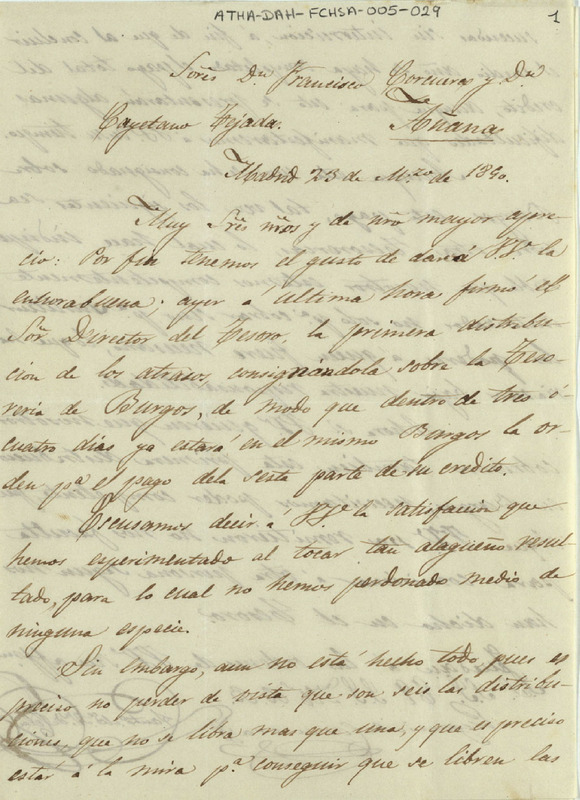 ATHA-DAH-FCHSA-005-029
1
Sores Dn. Francisco Corcuera y Dn
Cayetano Tejada.
Añana
Madrid 23 de Mzo de 1890.
Muy Sres nros y de nro mayor apre-
cio: Por fin tenemos el gusto de dar á VVs la
enhorabuena; ayer á última hora firmó el
Sor Director del Tesoro, la primera distribu-
cion de los atrasos, consignándola sobre la Teso-
reria de Burgos, de modo que dentro de tres ó
cuatro dias ya estará en el mismo Burgos la or-
den pa el pago dela sesta parte de su credito.
Escusamos decir á VVs la satisfacion que
hemos esperimentado al tocar tan alagüeño resul-
tado, para lo cual no hemos perdonado medio de
ninguna especie.
Sin embargo, aun no está hecho todo, pues es
preciso no perder de vista que son seis las distribu-
ciones, que no se libra mas que una, y que es preciso
estar á la mira pa. conseguir que se libren las